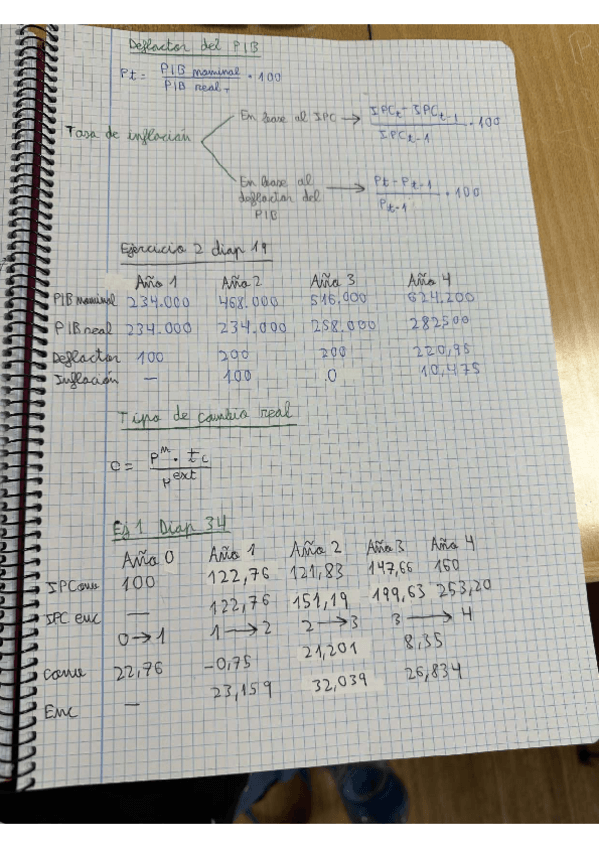 Deflactor del PIB
Pt = PIB nominal / PIB real · 100
Tasa de inflación
En base al IPC → IPCt - IPCt-1 / IPCt-1 · 100
En base al deflactor del PIB → Pt - Pt-1 / Pt-1 · 100
Ejercicio 2 diap 19
Año 1 Año 2 Año 3 Año 4
PIB nominal 234.000 468.000 516.000 624.200
PIB real 234.000 234.000 258.000 282500
Deflactor 100 200 200 220,95
Inflación — 100 .0 10,475
Tipo de cambio real
e = P^m · tc / p^ext
Ej 1 Diap 34
Año 0 Año 1 Año 2 Año 3 Año 4
IPC conv 100 122,76 121,83 147,66 160
IPC enc — 122,76 151,19 199,63 253,20
0→1 1→2 2→3 3→4
conv 22,76 -0,75 21,201 8,35
Enc — 23,159 32,039 26,834